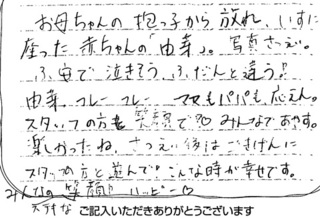 お母ちゃんの抱っ子から放れ、いすに
座った赤ちゃんの「由菜」。写真さつえい。
ふ安で泣きそう、ふだんと違う!
由菜 フレー フレー ママもパパも応えん。
スタッフの方も笑顔で みんなであやす。
楽しかったね、さつえい後はごきげんに
スタッフの方と遊んで!こんな時が幸せです。
みんなの笑顔!ハッピー♡
ステキな
ご記入いただきありがとうございます